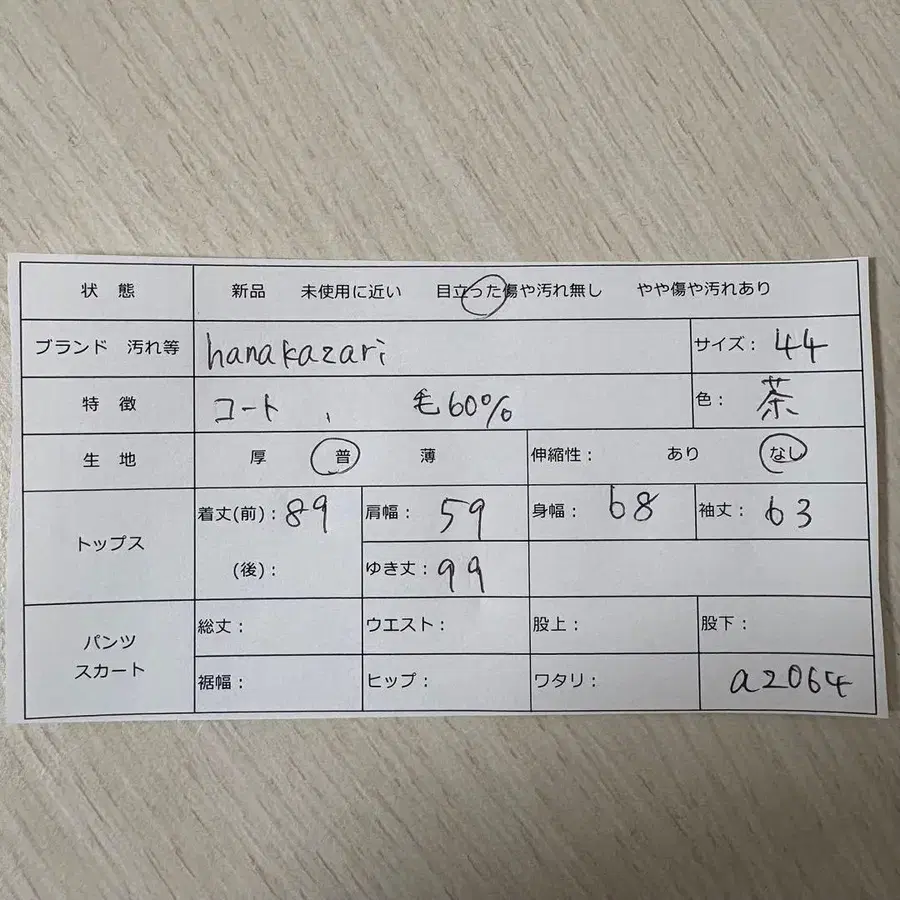 状 態 新品 未使用に近い 目立った傷や汚れ無し やや傷や汚れあり
ブランド 汚れ等 hanakazari サイズ: 44
特 徴 コート 、 毛60% 色: 茶
生 地 厚 普 薄 伸縮性: あり なし
トップス 着丈(前): 89 肩幅: 59 身幅: 68 袖丈: 63
(後): ゆき丈: 99
パンツ スカート 総丈: ウエスト: 股上: 股下:
裾幅: ヒップ: ワタリ: a2064